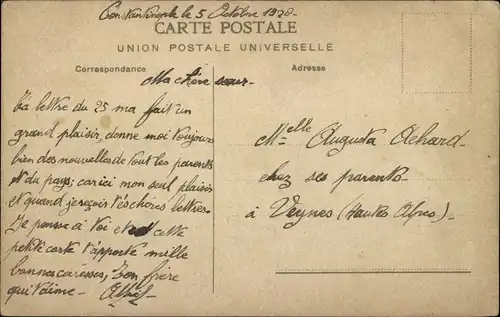 Constantinople le 5 Octobre 1920-
CARTE POSTALE
UNION POSTALE UNIVERSELLE
Correspondance
Adresse
Ma chère soeur-
Ta lettre du 25 ma fait un
grand plaisir, donne moi toujours
bien des nouvelles de tout les parents
et du pays; car ici mon seul plaisir
et quand je reçois tes chères lettres-
Je pense à toi et cette
petite carte t'apporte mille
bonnes caresses, Ton frère
qui t'aime-
Melle Augusta Achard-
chez ses parents-
à Veynes (Hautes Alpes)-